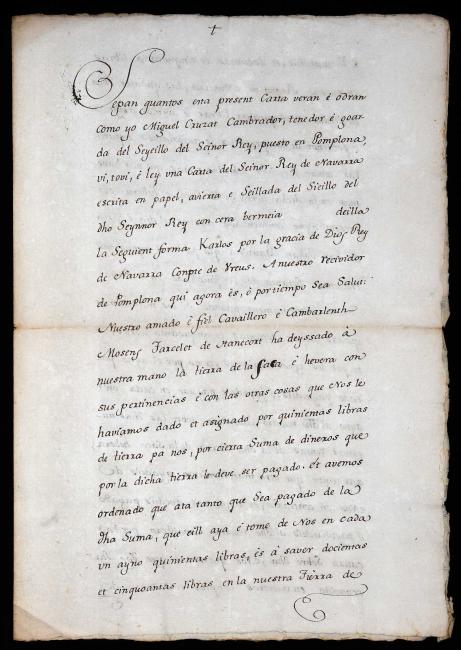 +
Sepan quantos enta present Carta veran è odran
como yo Miguel Cruzat Cambrador, tenedor è goar
da del Seyeillo del Seinor Rey, puesto en Pomplona,
vi, tovi, è ley vna Carta del Seinor Rey de Navarra
escrita en papel, avierta e Seillada del Sieillo del
dho Seynnor Rey con cera bermeia deilla
la Seguient forma Karlos por la gracia de Dios Rey
de Navarra Conpte de Vreus. A nuestro recividor
de Pomplona qui agora ès, ò por tiempo Sea Salut:
Nuestro amado è fiel Cavaillero è Cambarlenth
Mosens Jarcelet de Hanecort ha deyssado à
nuestra mano la tierra de la è hevera con
sus pertinencias è con las otras cosas que Nos le
haviamos dado et asignado por quinientas libras
de tierra pa nos, por cierta Suma de dineros que
por la dicha tierra le deve ser pagado. èt avemos
ordenado que ata tanto que Sea pagado de la
dha Suma, que eill aya è tome de Nos en cada
un ayno quinientas libras, ès à saver docientas
et cinquoantas libras en la nuestra Tierra de